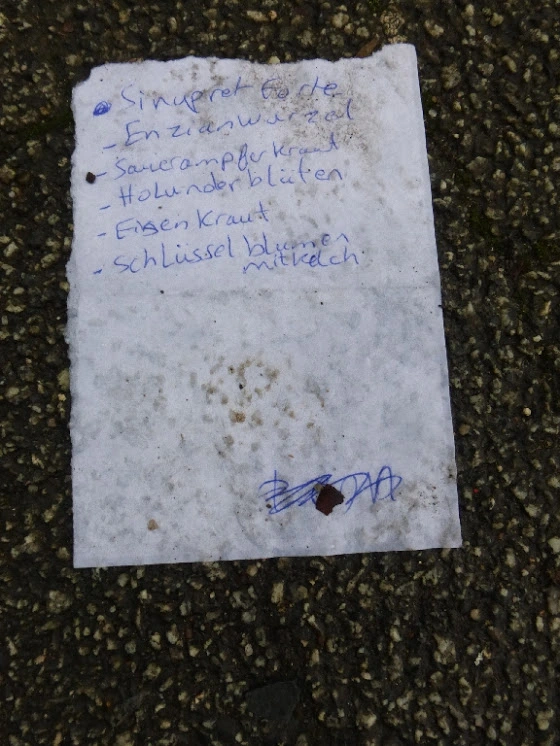 • Sinupret Forte
- Enzianwurzel
- Sauerampferkraut
- Holunderblüten
- Eisenkraut
- Schlüsselblumen
mitkelch